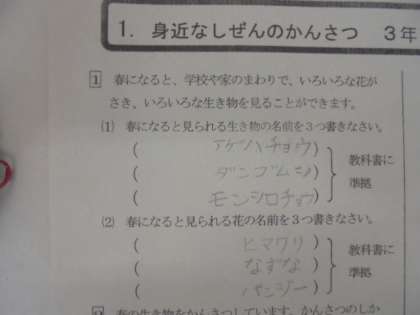 1. 身近なしぜんのかんさつ 3年
1 春になると、学校や家のまわりで、いろいろな花が
さき、いろいろな生き物を見ることができます。
(1) 春になると見られる生き物の名前を3つ書きなさい。
( アゲハチョウ )
( ダンゴムシ )
( モンシロチョウ )
教科書に
準拠
(2) 春になると見られる花の名前を3つ書きなさい。
( ヒマワリ )
( なずな )
( パンジー )
教科書に
準拠
2 春の生き物をかんさつしています。かんさつのしか